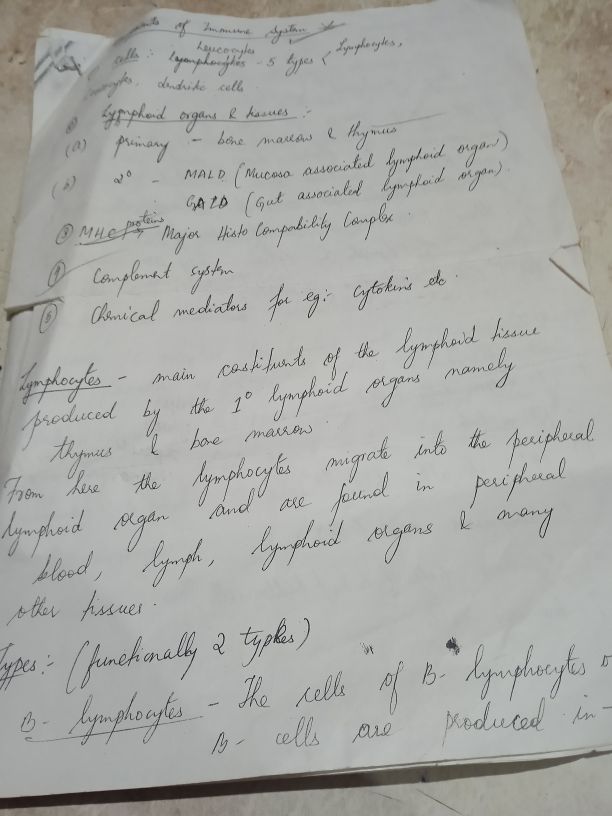 of Immune System
Leucocytes
cells : Lymphocytes - 5 types { Lymphocytes,
dendritic cells
Lymphoid organs & tissues :-
(a) primary - bone marrow & thymus
(b) 2° - MALO (Mucosa associated lymphoid organ)
GALO (Gut associated lymphoid organ).
③ MHC proteins → Major Histo Compability Complex.
④ Complement system
⑤ Chemical mediators for eg:- cytokins etc.
Lymphocytes - main costituents of the lymphoid tissue
produced by the 1° lymphoid organs namely
thymus & bone marrow.
From here the lymphocytes migrate into the peripheral
lymphoid organ and are found in peripheral
blood, lymph, lymphoid organs & many
other tissues.
Types:- (functionally 2 types)
B- lymphocytes - The cells of B- lymphocytes
B- cells are produced in-